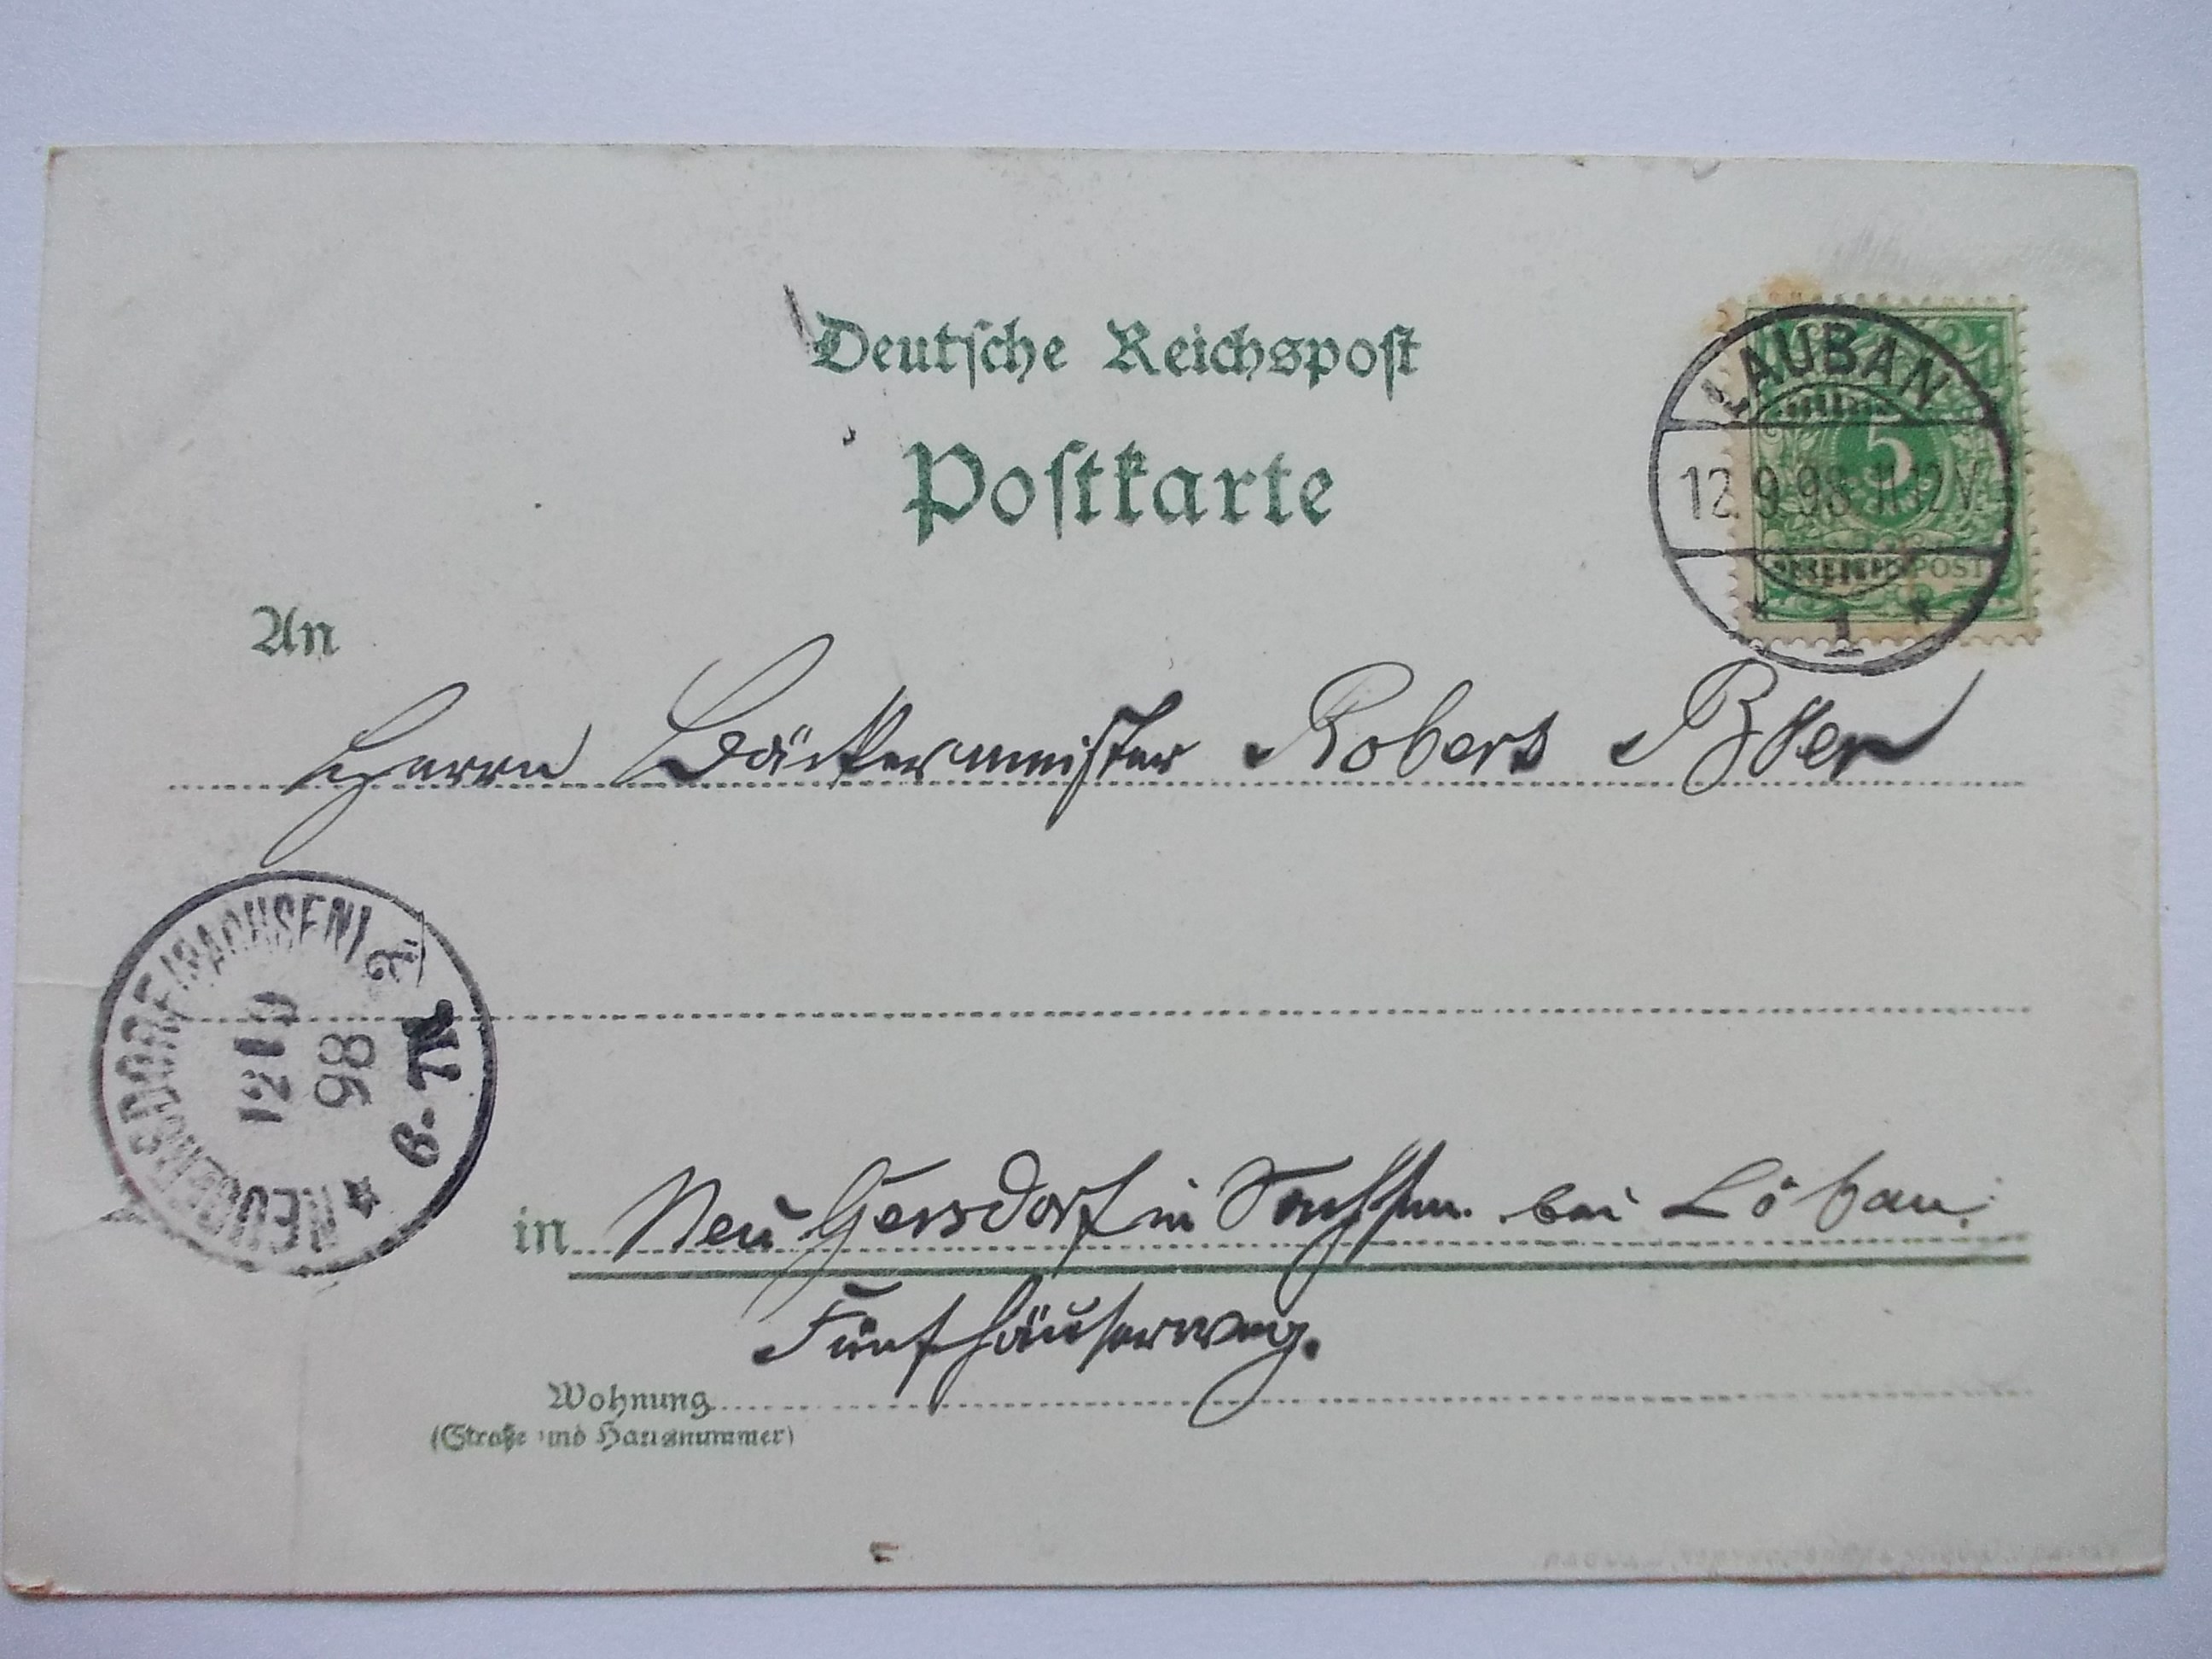 Deutsche Reichspost
Postkarte
LAUBAN
5
12.9.98.11-12V.
REICHSPOST
* 1 *
An
Herrn Bäckermeister Robert
NEUGERSDORF (SACHSEN)
12 9
98
6-7N
*
in Neu Gersdorf in Sachsen. bei Löbau.
Fünfhäuserweg.
Wohnung
(Straße und Hausnummer)